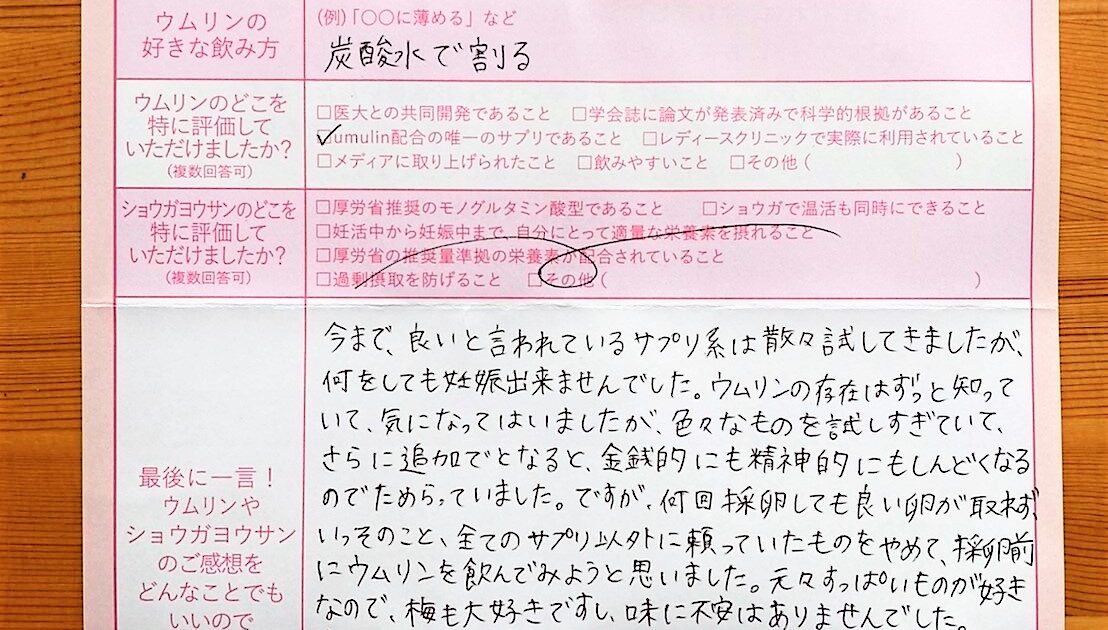 ウムリンの
好きな飲み方
(例)「〇〇に薄める」など
炭酸水で割る
ウムリンのどこを
特に評価して
いただけましたか?
(複数回答可)
□医大との共同開発であること □学会誌に論文が発表済みで科学的根拠があること
☑umulin配合の唯一のサプリであること □レディースクリニックで実際に利用されていること
□メディアに取り上げられたこと □飲みやすいこと □その他( )
ショウガヨウサンのどこを
特に評価して
いただけましたか?
(複数回答可)
□厚労省推奨のモノグルタミン酸型であること □ショウガで温活も同時にできること
□妊活中から妊娠中まで、自分にとって適量な栄養素を摂れること
□厚労省の推奨量準拠の栄養素が配合されていること
□過剰摂取を防げること □その他( )
最後に一言!
ウムリンや
ショウガヨウサン
のご感想を
どんなことでも
いいので
今まで、良いと言われているサプリ系は散々試してきましたが、
何をしても妊娠出来ませんでした。ウムリンの存在はずっと知って
いて、気になってはいましたが、色々なものを試しすぎていて、
さらに追加でとなると、金銭的にも精神的にもしんどくなる
のでためらっていました。ですが、何回採卵しても良い卵が取れず、
いっそのこと、全てのサプリ以外に頼っていたものをやめて、採卵前
にウムリンを飲んでみようと思いました。元々すっぱいものが好き
なので、梅も大好きですし、味に不安はありませんでした。